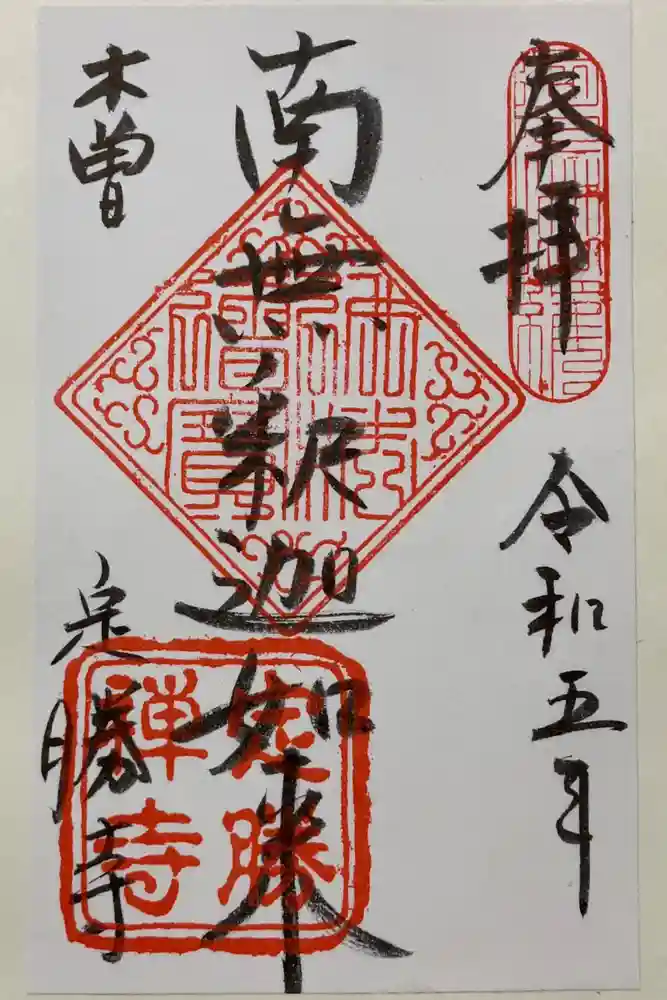 奉拝
令和五年
南無釈迦如来
木曽
定勝寺
佛法僧寳
定勝禅寺